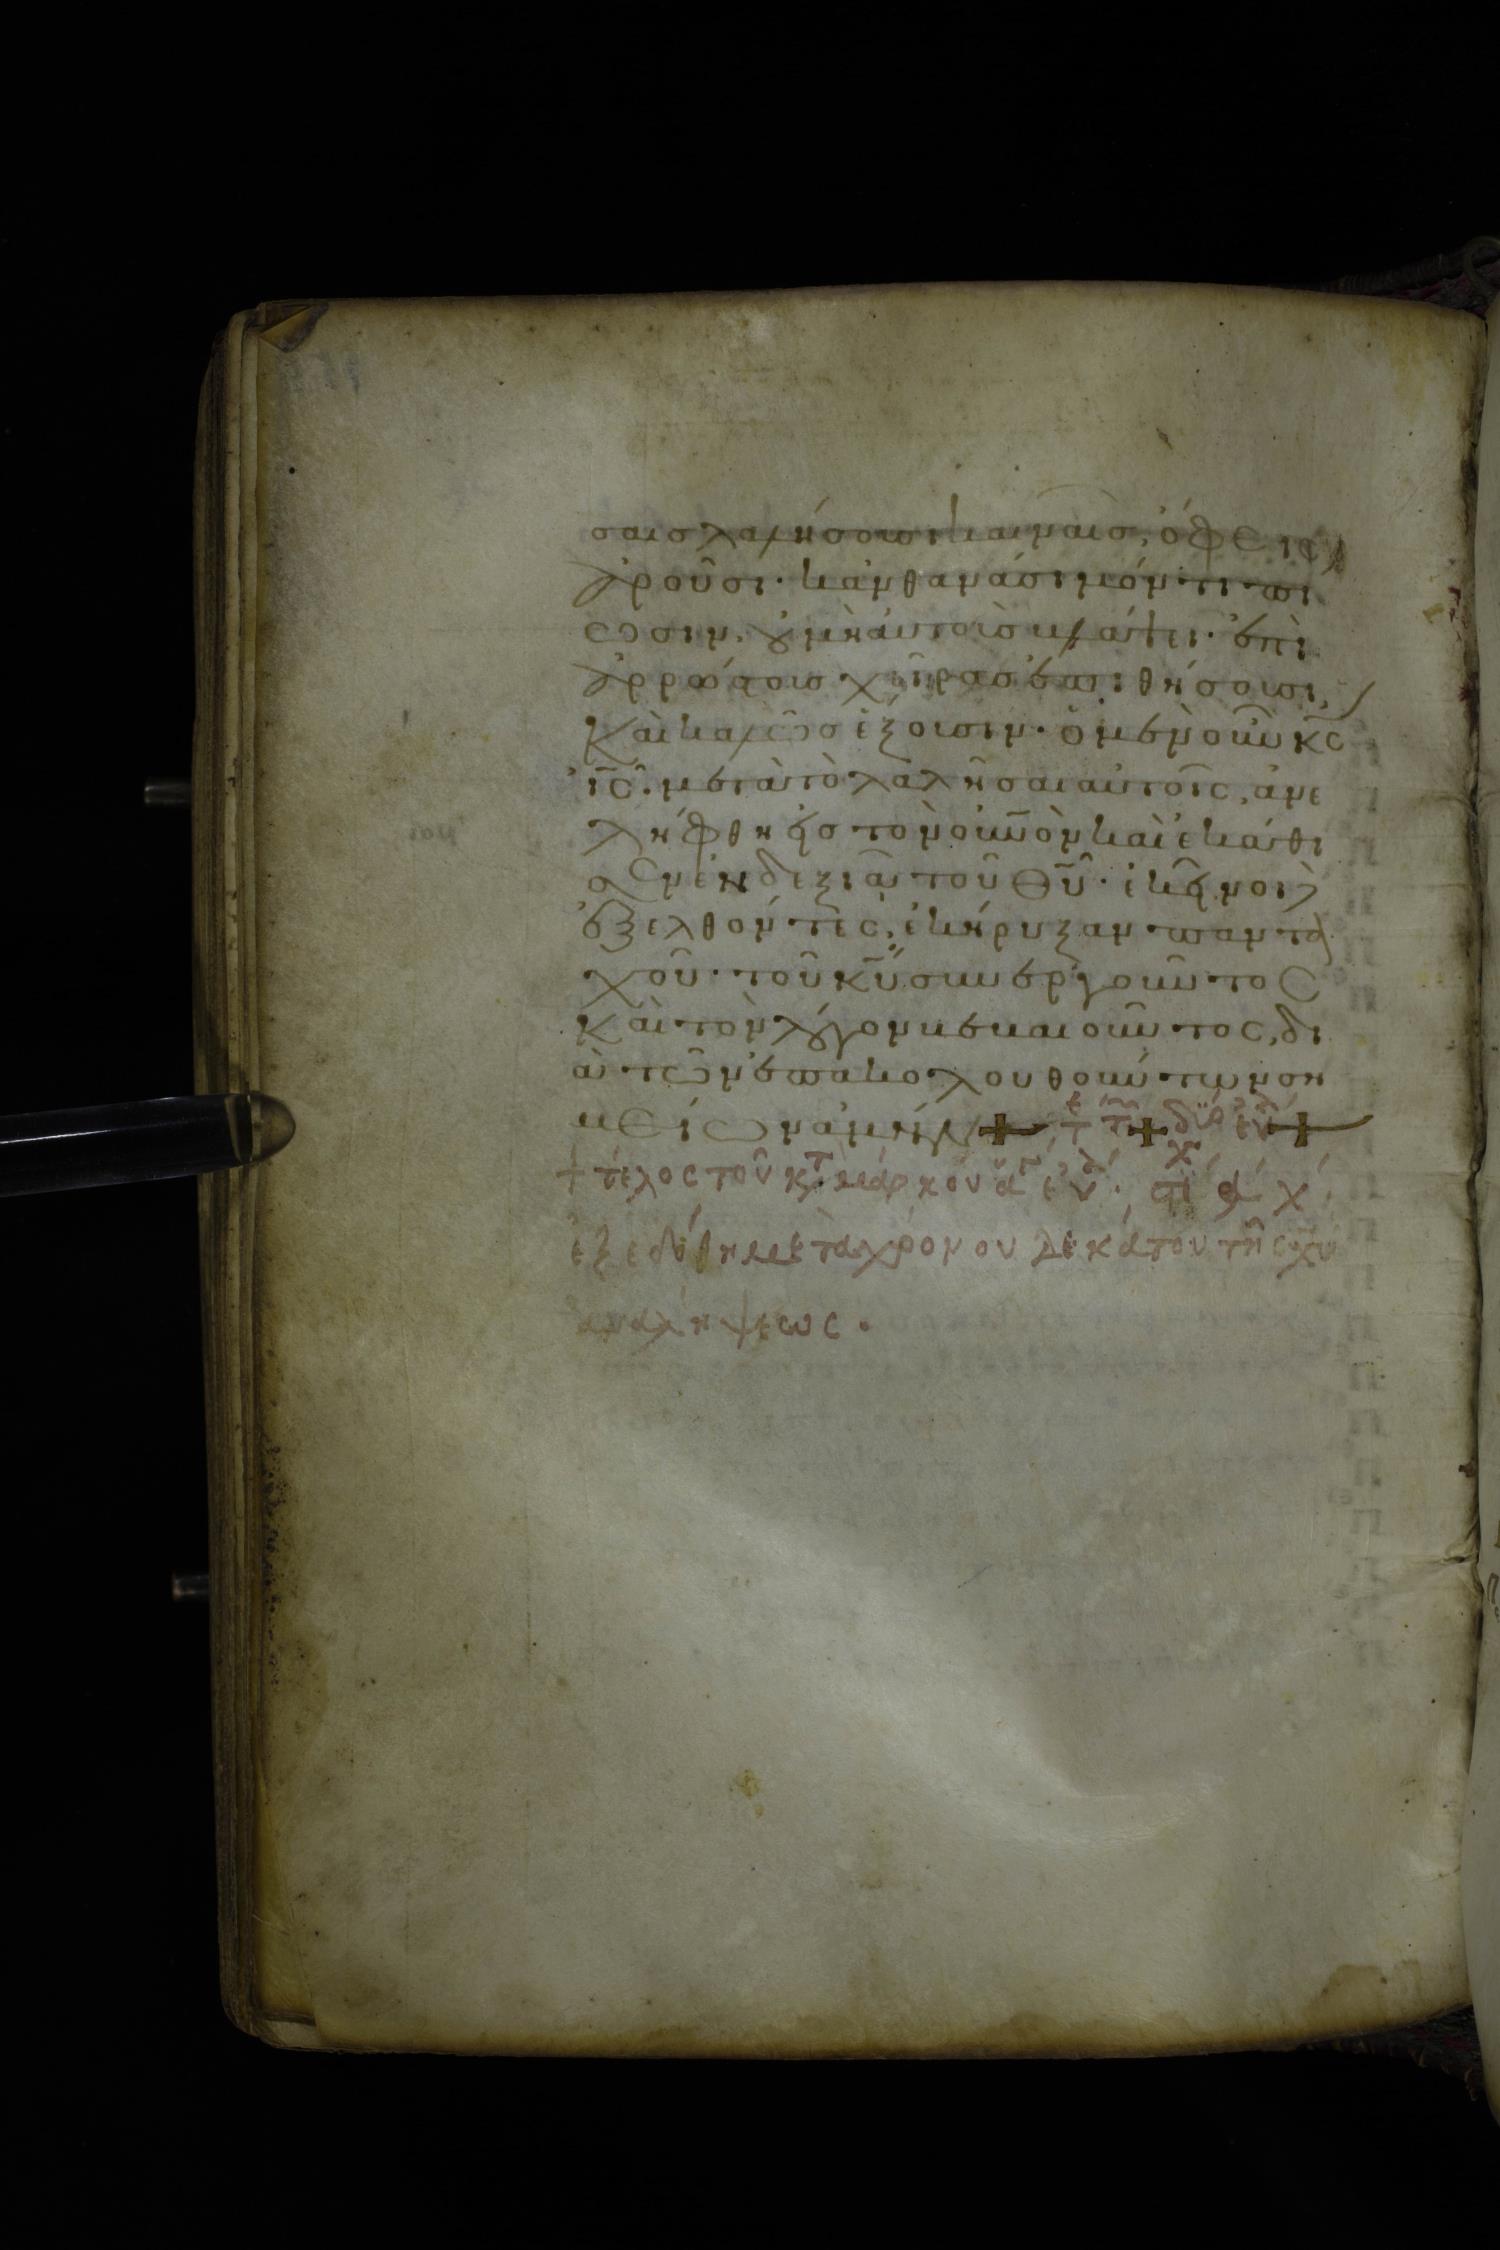 σαισ λαλήσουσι καιναισ, ὄφεις
ἀροῦσι· κἀν θανάσιμόν τι πι
ωσιν, οὐ μὴ αὐτοὺσ βλάψει· ἐπὶ
ἀρρώστουσ χεῖρασ ἐπιθήσουσι,
Καὶ καλῶσ ἕξουσιν· ὁ μὲν οὖν κ̅ς̅
ι̅ς̅· μετὰ τὸ λαλῆσαι αὐτοῖς, ἀνε
λήφθη εἰσ τὸν οὐ̅νὸν καὶ ἐκάθι
σεν ἐκ δεξιῶν τοῦ θ̅υ̅· ἐκεῖνοι
ἐξελθόντες, ἐκήρυξαν παντα
χοῦ· τοῦ κ̅υ̅ συνεργοῦντος
Καὶ τὸν λόγον βεβαιοῦντος, δι
ὰ τῶν ἐπακολουθούντων ση
μείων ἀμήν + +
+ τέλος τοῦ κτ μάρκον ἁγ εὐ
ἐξεδόθη μετὰ χρόνου δεκάτου τῆς χ̅υ̅
ἀναλήψεως.